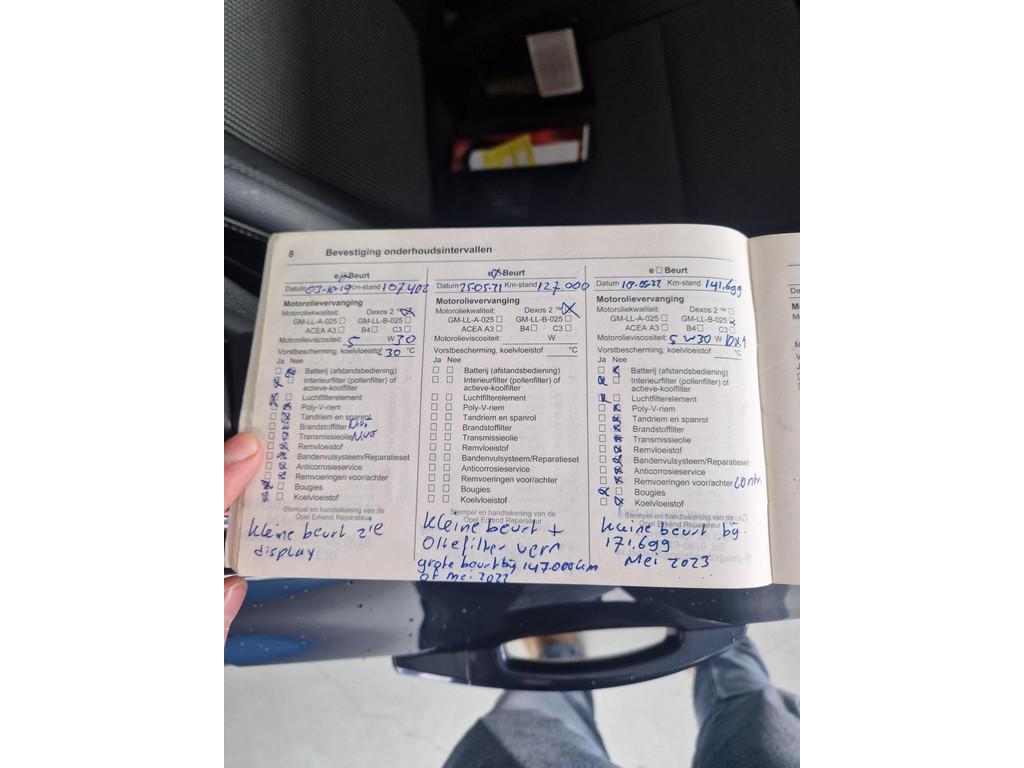 8 Bevestiging onderhoudsintervallen
e Beurt
Datum 03-10-19 Km-stand 107402
Motorolievervanging
Motorkwaliteit: Dexos 2 ™
GM-LL-A-025 GM-LL-B-025
ACEA A3 B4 C3
Motorolieviscositeit: 5 W 30
Vorstbescherming, koelvloeistof -30 °C
Ja Nee
Batterij (afstandsbediening)
Interieurfilter (pollenfilter) of
actieve-koolfilter
Luchtfilterelement
Poly-V-riem
Tandriem en spanrol
Brandstoffilter
Transmissieolie
Remvloeistof
Bandenvulsysteem/Reparatieset
Anticorrosieservice
Remvoeringen voor/achter
Bougies
Koelvloeistof
Stempel en handtekening van de
Opel Erkend Reparateur
kleine beurt zie
display
e Beurt
Datum 25-05-21 Km-stand 127.000
Motorolievervanging
Motoroliekwaliteit: Dexos 2 ™
GM-LL-A-025 GM-LL-B-025
ACEA A3 B4 C3
Motorolieviscositeit: W
Vorstbescherming, koelvloeistof °C
Ja Nee
Batterij (afstandsbediening)
Interieurfilter (pollenfilter) of
actieve-koolfilter
Luchtfilterelement
Poly-V-riem
Tandriem en spanrol
Brandstoffilter
Transmissieolie
Remvloeistof
Bandenvulsysteem/Reparatieset
Anticorrosieservice
Remvoeringen voor/achter
Bougies
Koelvloeistof
Stempel en handtekening van de
Opel Erkend Reparateur
kleine beurt +
Oliefilter vern
grote beurt bij 147.000km
of mei 2022
e Beurt
Datum 10-05-22 Km-stand 141.699
Motorolievervanging
Motoroliekwaliteit: Dexos 2 ™
GM-LL-A-025 GM-LL-B-025
ACEA A3 B4 C3
Motorolieviscositeit: 5 W30 W DX1
Vorstbescherming, koelvloeistof °C
Ja Nee
Batterij (afstandsbediening)
Interieurfilter (pollenfilter) of
actieve-koolfilter
Luchtfilterelement
Poly-V-riem
Tandriem en spanrol
Brandstoffilter
Transmissieolie
Remvloeistof
Bandenvulsysteem/Reparatieset
Anticorrosieservice
Remvoeringen voor/achter contr.
Bougies
Koelvloeistof
Stempel en handtekening van de
Opel Erkend Reparateur
kleine beurt bij
171.699
Mei 2023